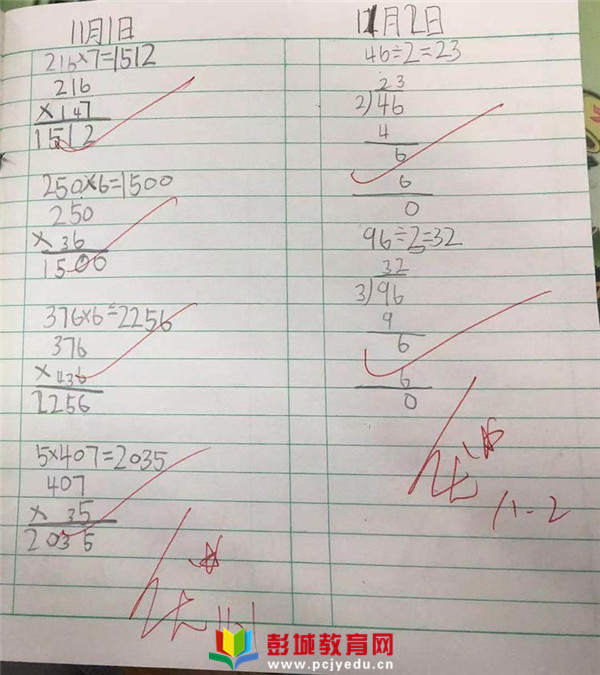 11月1日
216×7=1512
216
× 147
1512
250×6=1500
250
× 36
1500
376×6=2256
376
× 436
2256
5×407=2035
407
× 35
2035
优
11.1
11月2日
46÷2=23
23
2)46
4
6
6
0
96÷2=32
32
3)96
9
6
6
0
优
11-2
彭城教育网
www.pcjyedu.cn